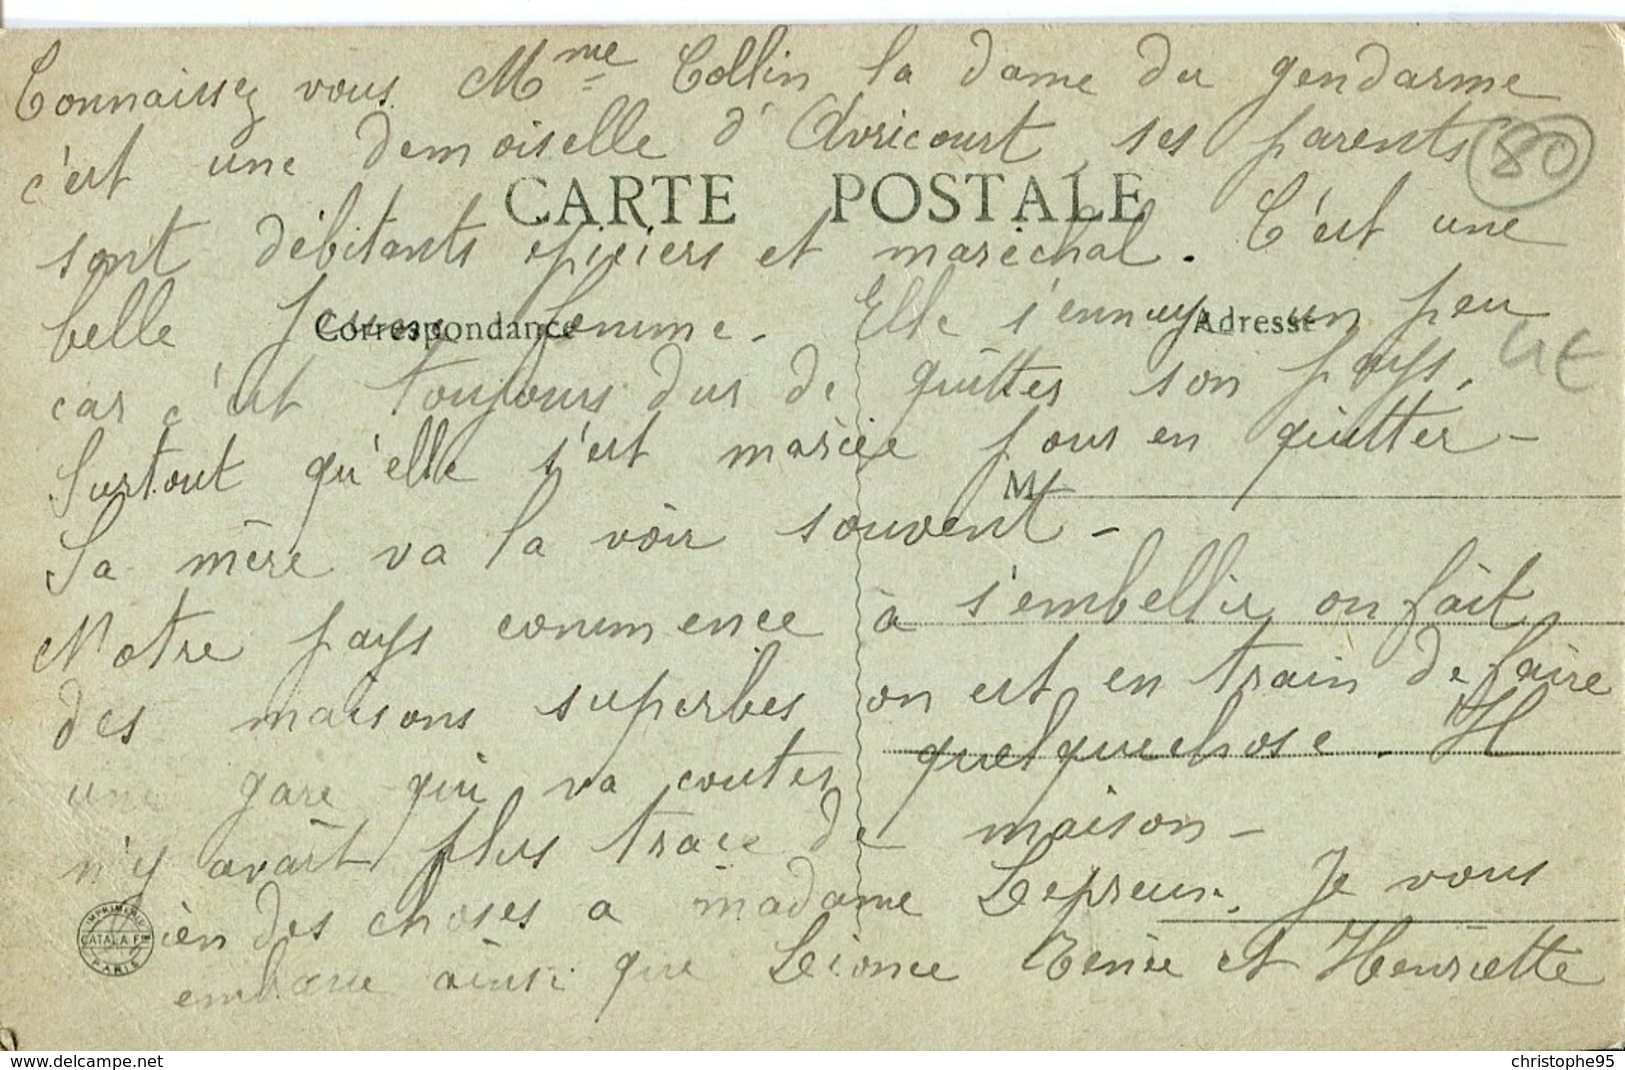 Connaissez vous Mme Collin la dame du gendarme
c'est une demoiselle d'Avricourt, ses parents
80
CARTE POSTALE
sont débitants épiciers et maréchal. C'est une
belle jeune femme. Elle s'ennuye un peu
Correspondance
Adresse
4€
car c'est toujours dur de quitter son pays.
Surtout qu'elle s'est mariée pour en quitter -
M
Sa mère va la voir souvent -
Notre pays commence à s'embellir, on fait
des maisons superbes on est en train de faire
une gare qui va couter quelquechose. Il
n'y avait plus trace de maison -
Bien des choses a madame Lepreux. Je vous
embrasse ainsi que Léonce Renée et Henriette
IMPRIMERIE CATALA Frères PARIS
www.delcampe.net
christophe95